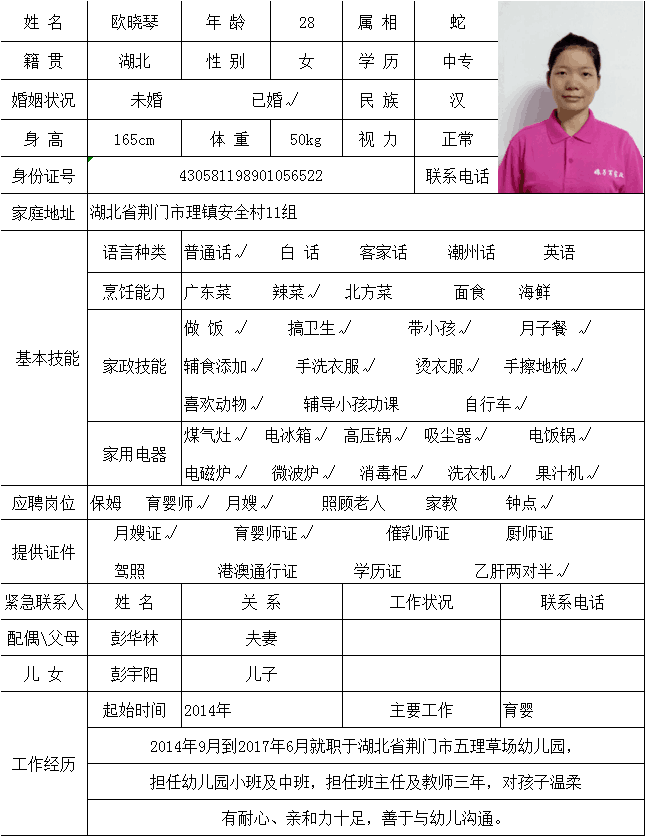 姓 名 欧晓琴 年 龄 28 属 相 蛇
籍 贯 湖北 性 别 女 学 历 中专
婚姻状况 未婚 已婚√ 民 族 汉
身 高 165cm 体 重 50kg 视 力 正常
身份证号 430581198901056522 联系电话
家庭地址 湖北省荆门市理镇安全村11组
基本技能
语言种类 普通话√ 白 话 客家话 潮州话 英语
烹饪能力 广东菜 辣菜√ 北方菜 面食 海鲜
家政技能
做 饭 √ 搞卫生√ 带小孩√ 月子餐 √
辅食添加√ 手洗衣服√ 烫衣服√ 手擦地板√
喜欢动物√ 辅导小孩功课 自行车√
家用电器
煤气灶√ 电冰箱√ 高压锅√ 吸尘器√ 电饭锅√
电磁炉√ 微波炉√ 消毒柜√ 洗衣机√ 果汁机√
应聘岗位 保姆 育婴师√ 月嫂√ 照顾老人 家教 钟点√
提供证件
月嫂证√ 育婴师证√ 催乳师证 厨师证
驾照 港澳通行证 学历证 乙肝两对半√
紧急联系人 姓 名 关 系 工作状况 联系电话
配偶\父母 彭华林 夫妻
儿 女 彭宇阳 儿子
工作经历
起始时间 2014年 主要工作 育婴
2014年9月到2017年6月就职于湖北省荆门市五理草场幼儿园，
担任幼儿园小班及中班，担任班主任及教师三年，对孩子温柔
有耐心、亲和力十足，善于与幼儿沟通。